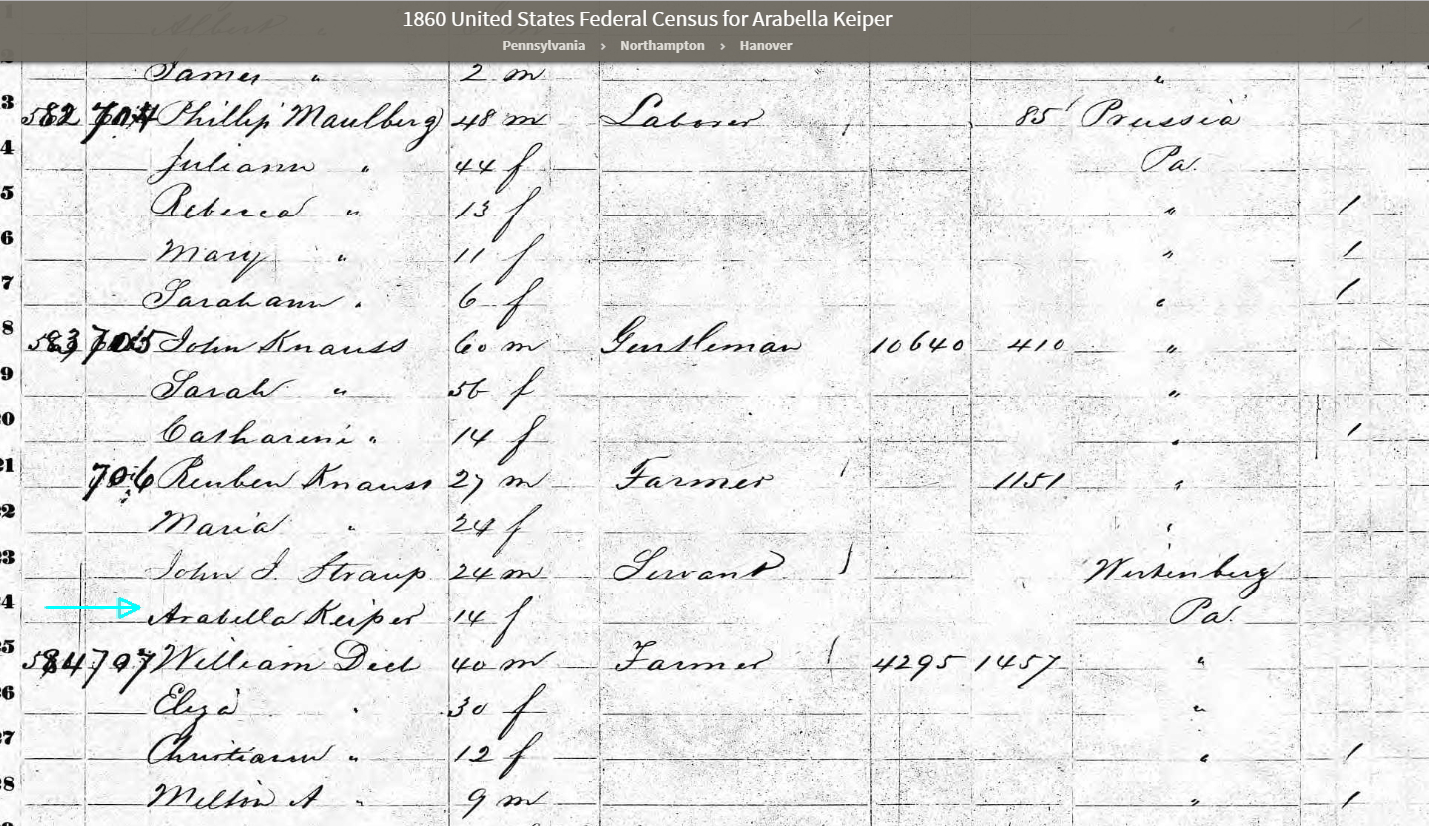 1860 United States Federal Census for Arabella Keiper
Pennsylvania › Northampton › Hanover
Albert "
2 James " 2 m "
3 582 704 Phillip Maulberg 48 m Laborer / 85 Prussia
4 Juliann " 44 f Pa.
5 Rebecca " 13 f " /
6 Mary " 11 f " /
7 Sarah ann " 6 f " /
8 583 705 John Knauss 60 m Gentleman 10640 410 "
9 Sarah " 56 f "
20 Catharine " 14 f " /
21 706 Reuben Knauss 27 m Farmer / 1151 "
2 Maria " 24 f "
23 John J. Straup 24 m Servant / Wirtenberg
24 Arabella Keiper 14 f Pa.
25 584 707 William Deel 40 m Farmer / 4295 1457 "
26 Eliza " 30 f "
27 Christiann " 12 f " /
28 Milton A " 9 m " /